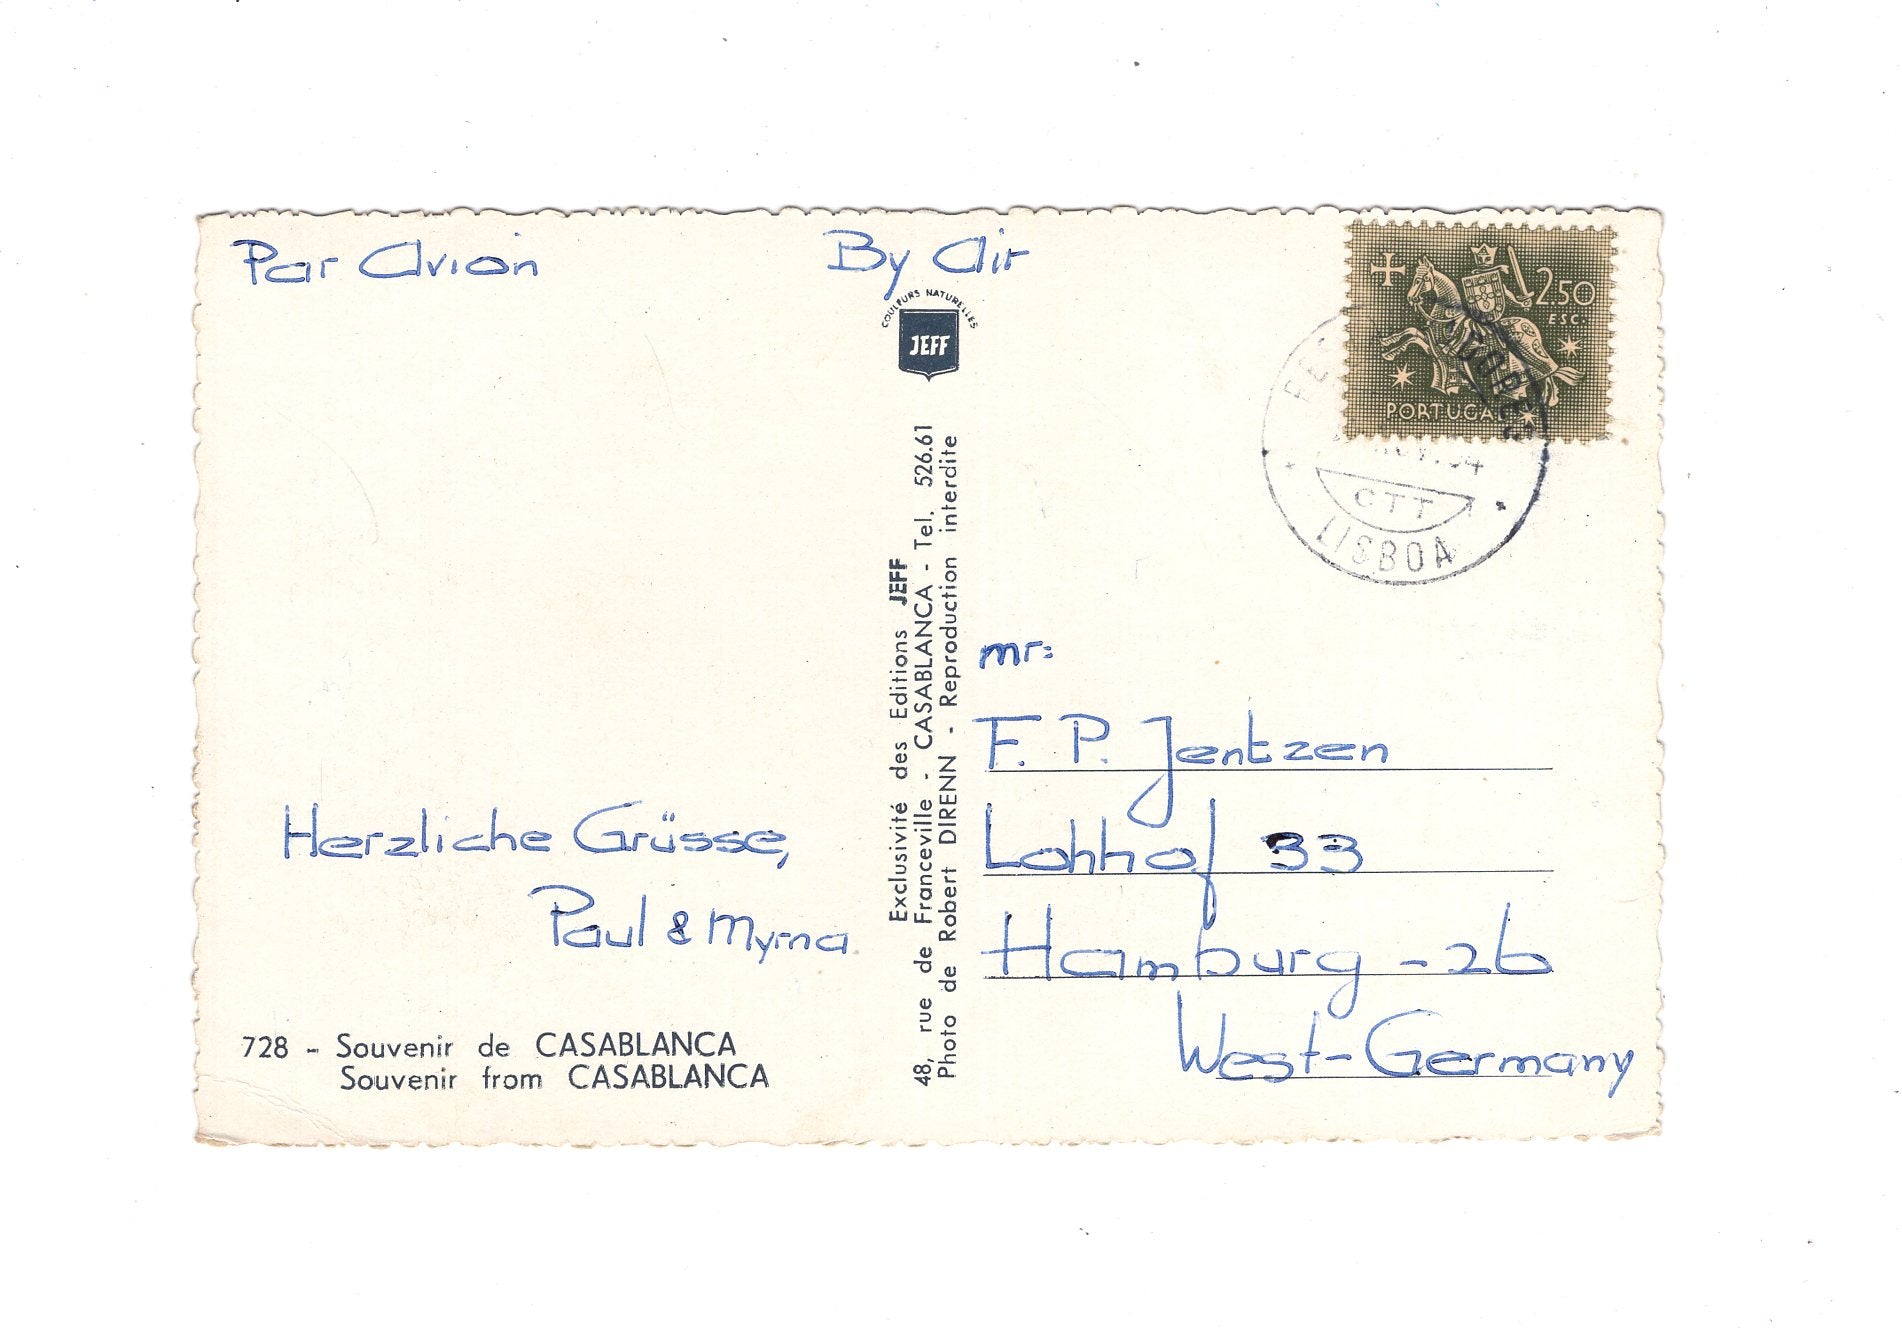 Par Avion
By Air
COULEURS NATURELLES
JEFF
2.50
ESC.
PORTUGAL
CTT
LISBOA
Herzliche Grüsse,
Paul & Myrna
728 - Souvenir de CASABLANCA
Souvenir from CASABLANCA
Exclusivité des Editions JEFF
48, rue de Franceville - CASABLANCA - Tel. 526.61
Photo de Robert DIRENN - Reproduction interdite
mr:
F. P. Jentzen
Lohhof 33
Hamburg - 26
West-Germany